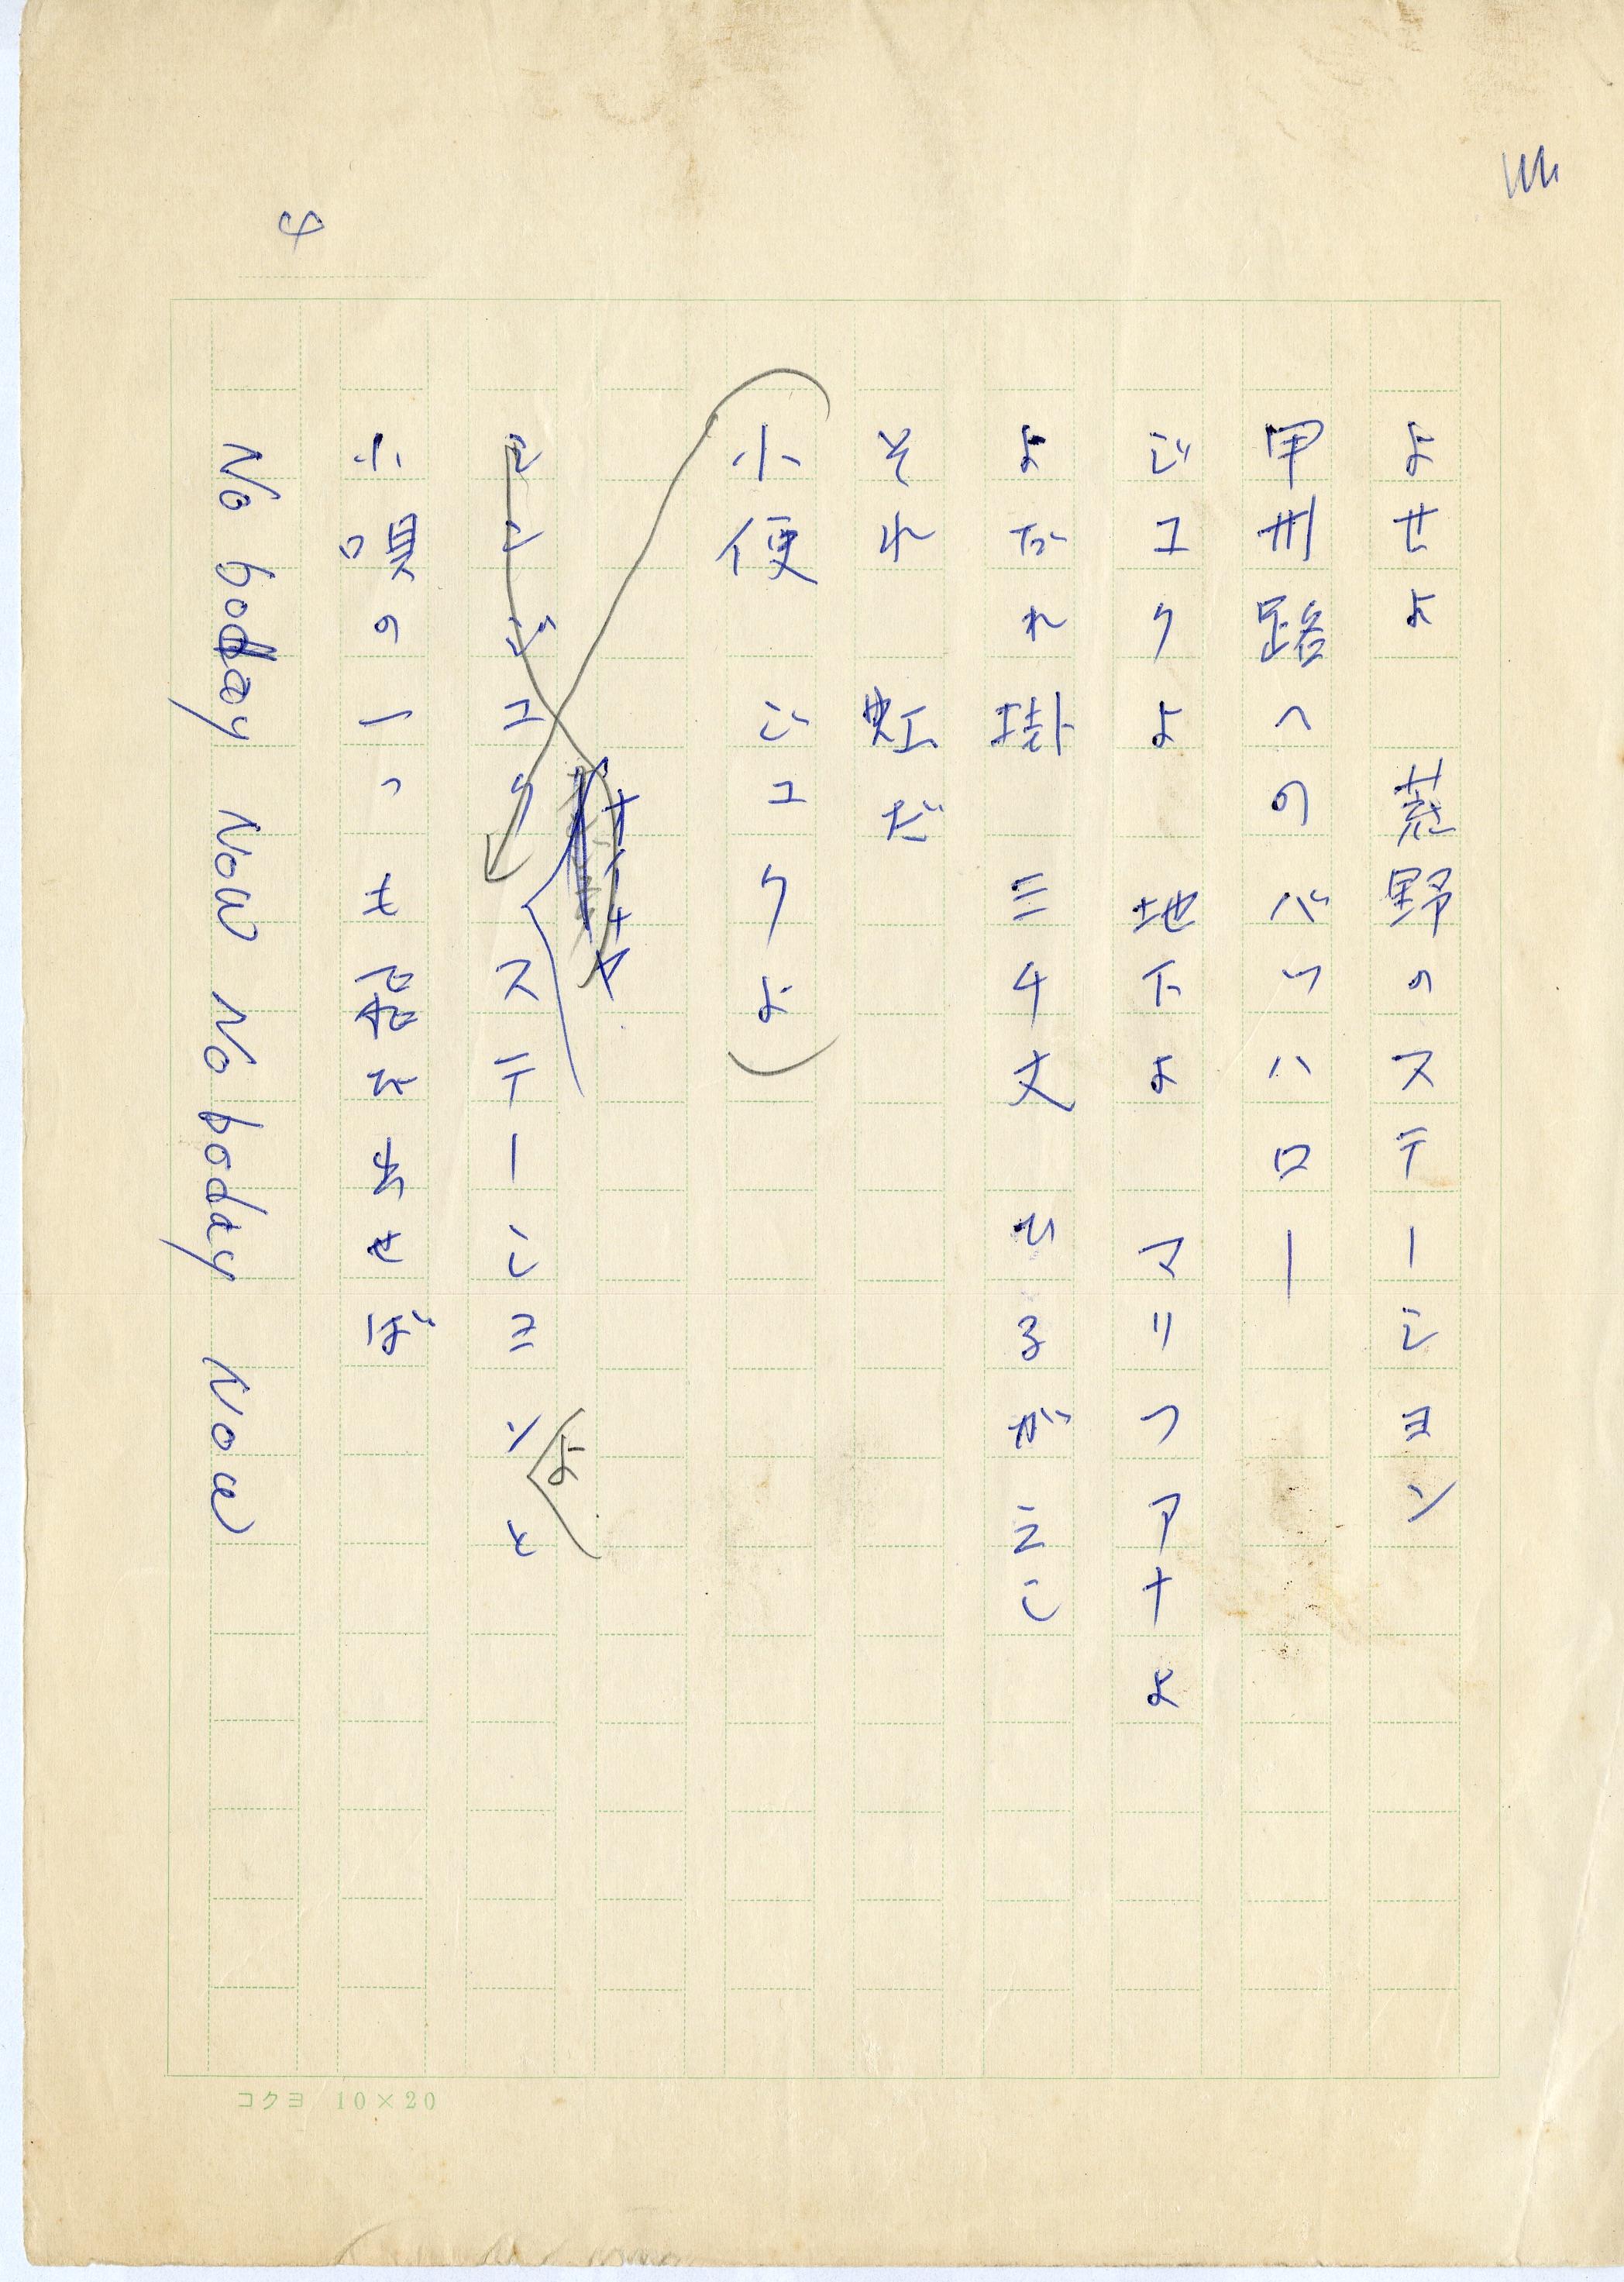 4
よせよ　荒野のステーシヨン
甲州路へのバツハロー
ジユクよ　地下よ　マリフアナよ
よだれ掛　三千丈　ひるがえし
それ　虹だ
(小便ジユクよ)
シンジユクステーシヨンと
よ
小唄の一つも せば
No boday Now No boday Now
コクヨ 10×20